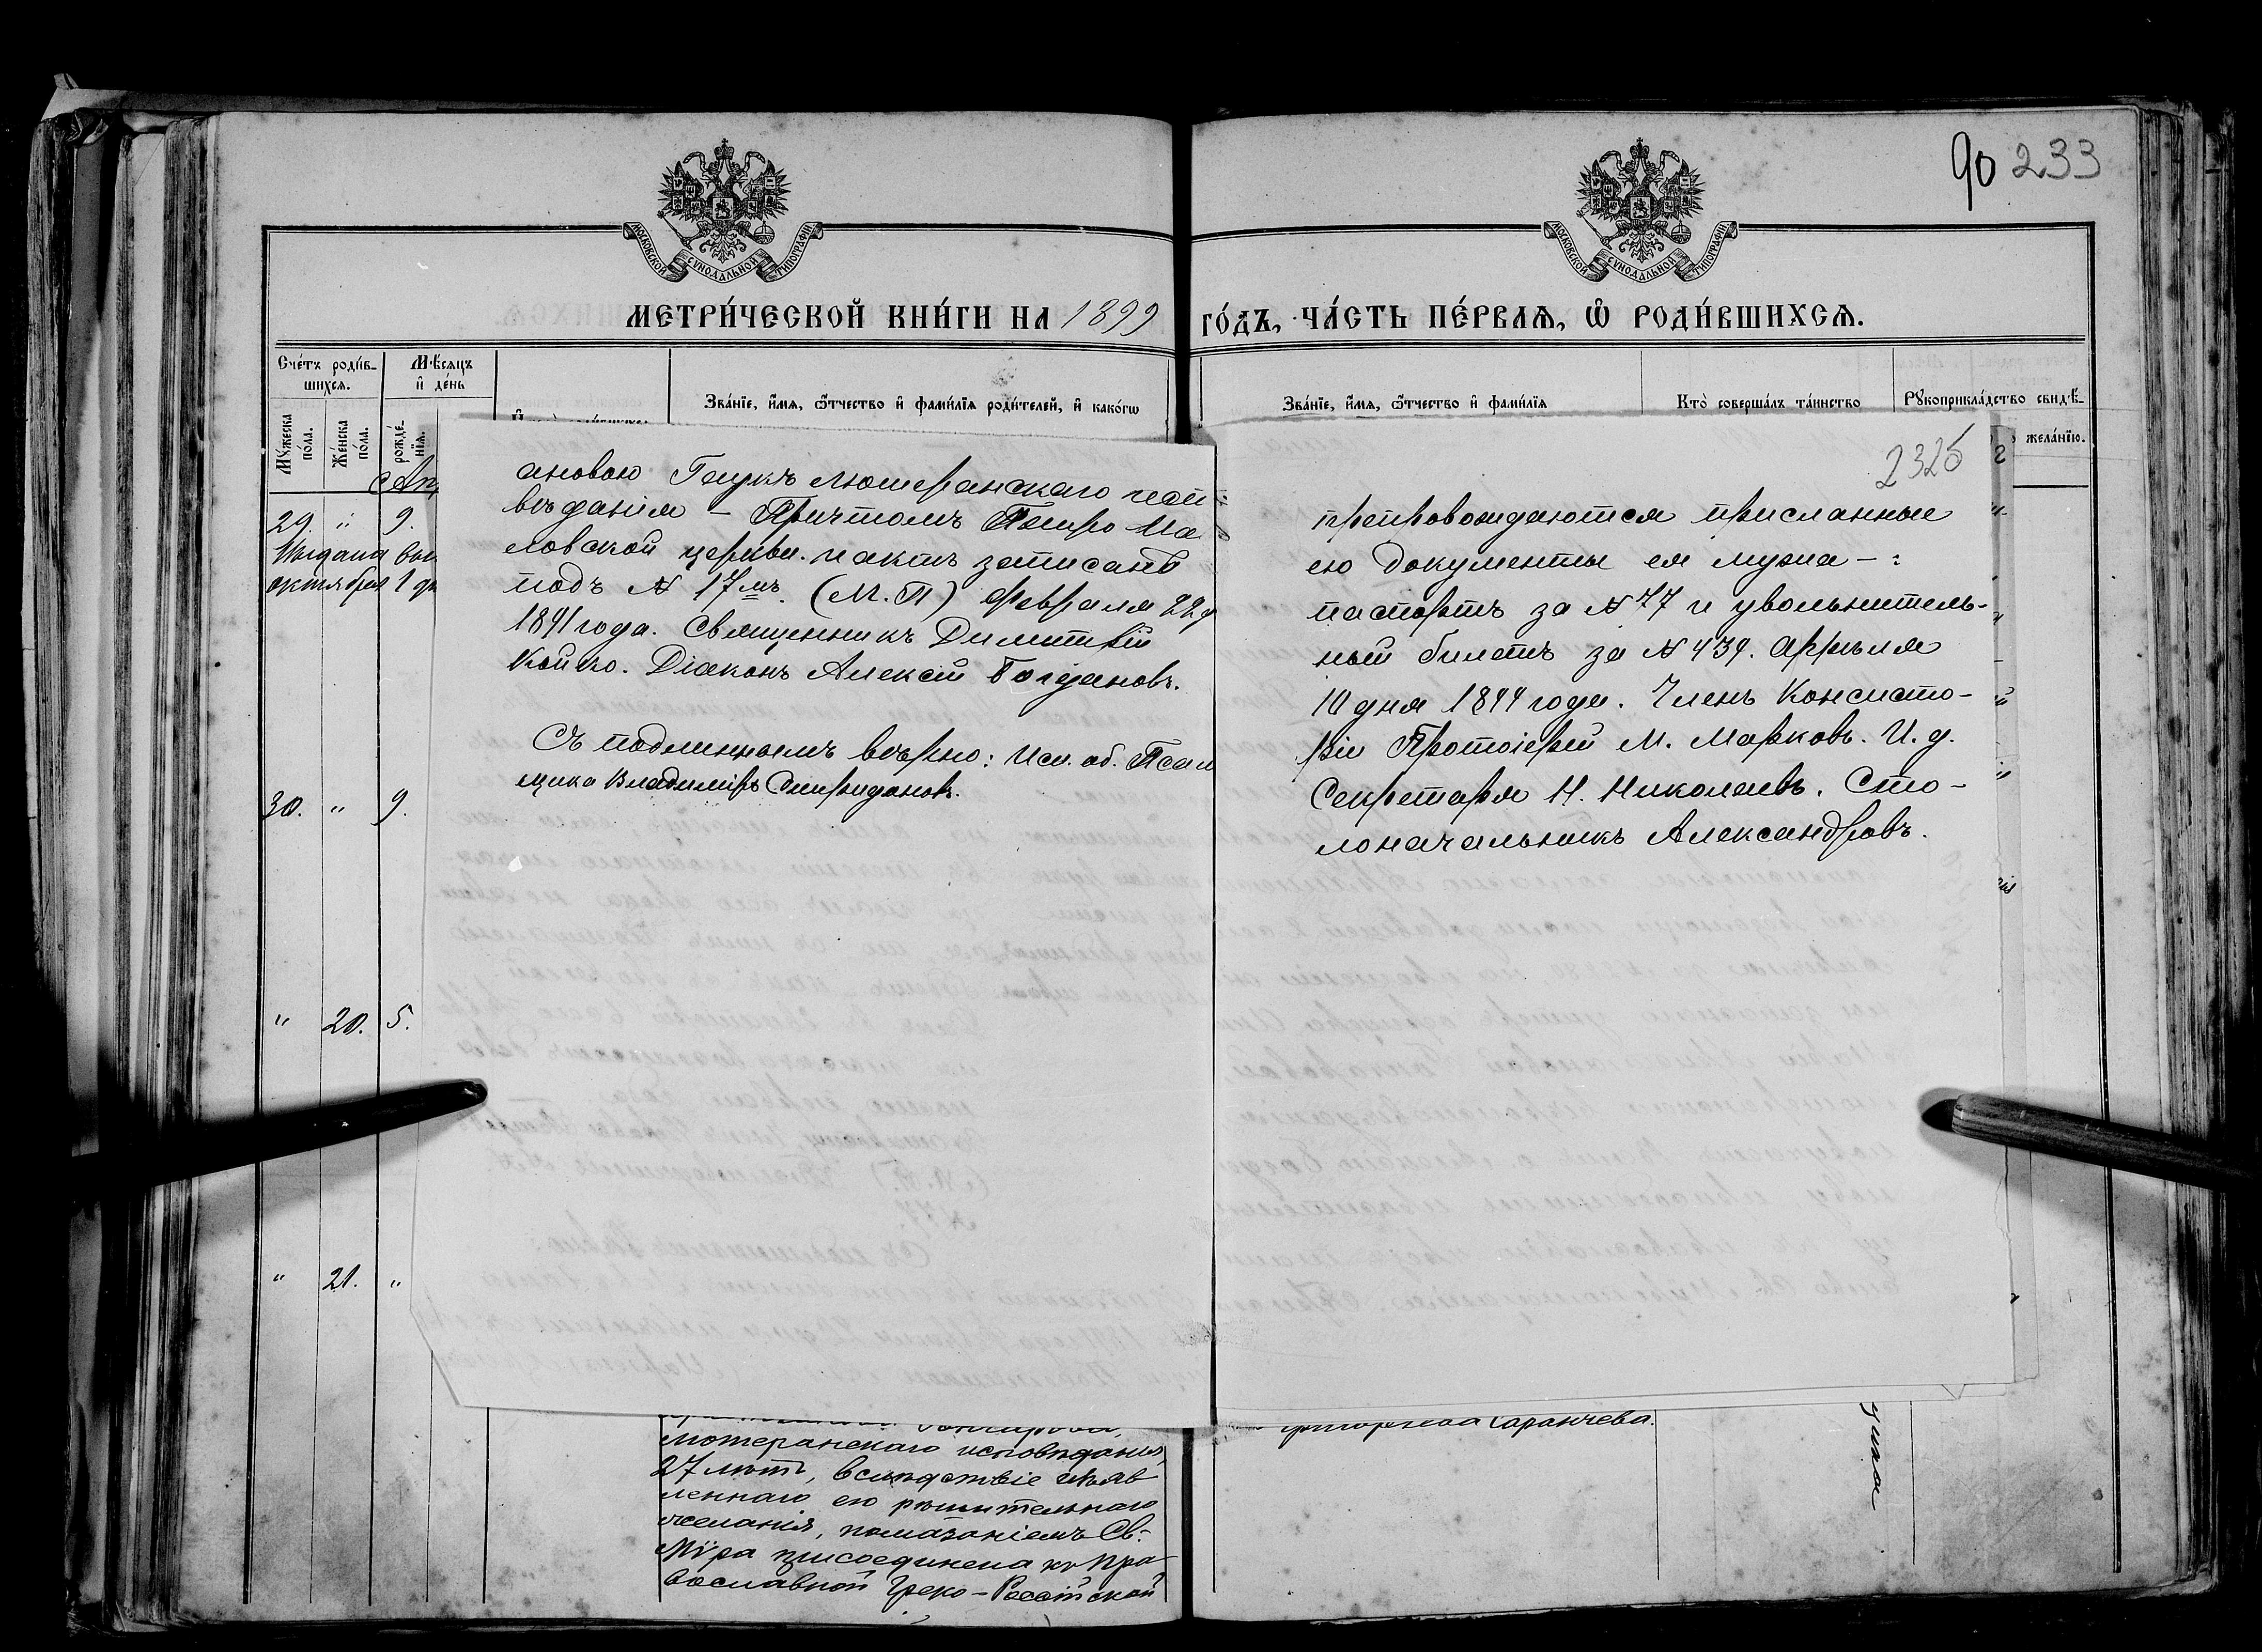 90 233
МОСКОВСКОЙ СУНОДАЛЬНОЙ ТИПОГРАФІИ
МОСКОВСКОЙ СУНОДАЛЬНОЙ ТИПОГРАФІИ
МЕТРИ́ЧЕСКОЙ КНИ́ГИ НА 1899 ГО́ДЪ, ЧА́СТЬ ПЕ́РВАѦ, Ѡ҆ РОДИ́ВШИХСѦ.
Сче́тъ роди́в-
шихсѧ.
Мѣ́сяцъ
и҆ де́нь
Мꙋ́жеска
по́ла.
Же́нска
по́ла.
рожде́-
нїѧ.
Зва́нїе, и҆́мѧ, ѻ҆́тчество и҆ фами́лїѧ роди́телей, и҆ како́гѡ
Зва́нїе, и҆́мѧ, ѻ҆́тчество и҆ фами́лїѧ
Кто̀ соверша́лъ та́инство
Рꙋкоприкла́дство свидѣ́-
жела́нїю.
29. " 9.
Выдана
октября 1
30. " 9.
" 20. 5.
" 21. "
ановою Гаукъ лютеранскаго испо-
вѣданія – Причтомъ Петро Па
ловской церкви. и актъ записанъ
подъ № 17мъ. (М.П) Февраля 22
1891 года. Священникъ Димитрій
Койко. Діаконъ Алексій Богдановъ.
Съ подлиннымъ вѣрно: Исп. об. Псал
щика Владиміръ Спиридоновъ.
2325
препровождаются присланные
ею документы ея мужа – :
паспортъ за № 77 и увольнитель-
ный билетъ за № 439. Апрѣля
10 дня 1899 года. Членъ Консисто-
ріи Протоіерей М. Марковъ. И. д.
Секретаря Н. Николаевъ. Сто-
лоначальникъ Александровъ.
Саранчева.
лютеранскаго исповѣданія,
27 лѣтъ, вслѣдствіе изъяв
леннаго ею рѣшительнаго
желанія, помазаніемъ Св.
Мѵра присоединена къ Пра
вославной Греко-Россійской